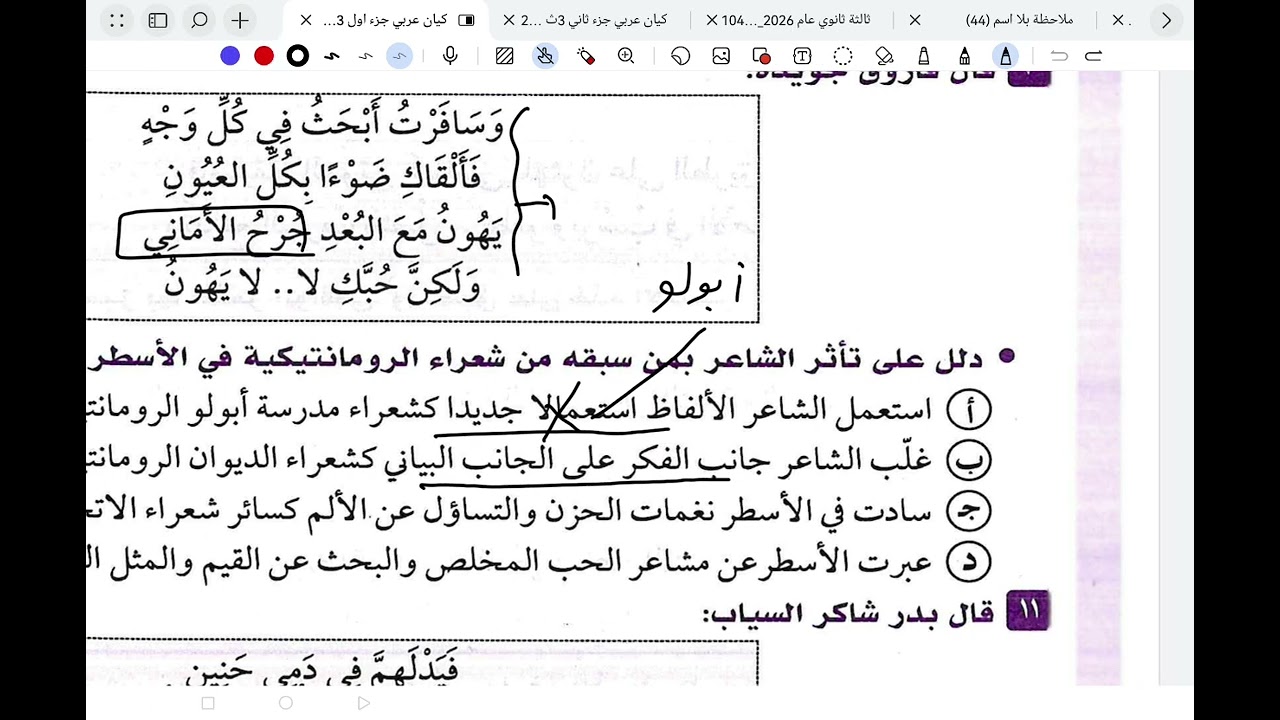 كيان عربي جزء اول 3...
كيان عربي جزء ثاني 3ث ...2
ثالثة ثانوي عام 2026_...104
ملاحظة بلا اسم (44)
قال فاروق جويدة:
وَسَافَرْتُ أَبْحَثُ فِي كُلِّ وَجْهٍ
فَأَلْقَاكِ ضَوْءًا بِكُلِّ العُيُونِ
يَهُونُ مَعَ البُعْدِ جُرْحُ الأَمَانِي
وَلَكِنَّ حُبَّكِ لا.. لا يَهُونُ
أبولو
دلل على تأثر الشاعر بمن سبقه من شعراء الرومانتيكية في الأسطر
أ استعمل الشاعر الألفاظ استعمالا جديدا كشعراء مدرسة أبولو
ب غلّب الشاعر جانب الفكر على الجانب البياني كشعراء الديوان
ج سادت في الأسطر نغمات الحزن والتساؤل عن الألم كسائر شعراء
د عبرت الأسطر عن مشاعر الحب المخلص والبحث عن القيم والمثل
١١ قال بدر شاكر السياب:
فَيَدْلَهِمَّ فِي دَمِي حَنِين